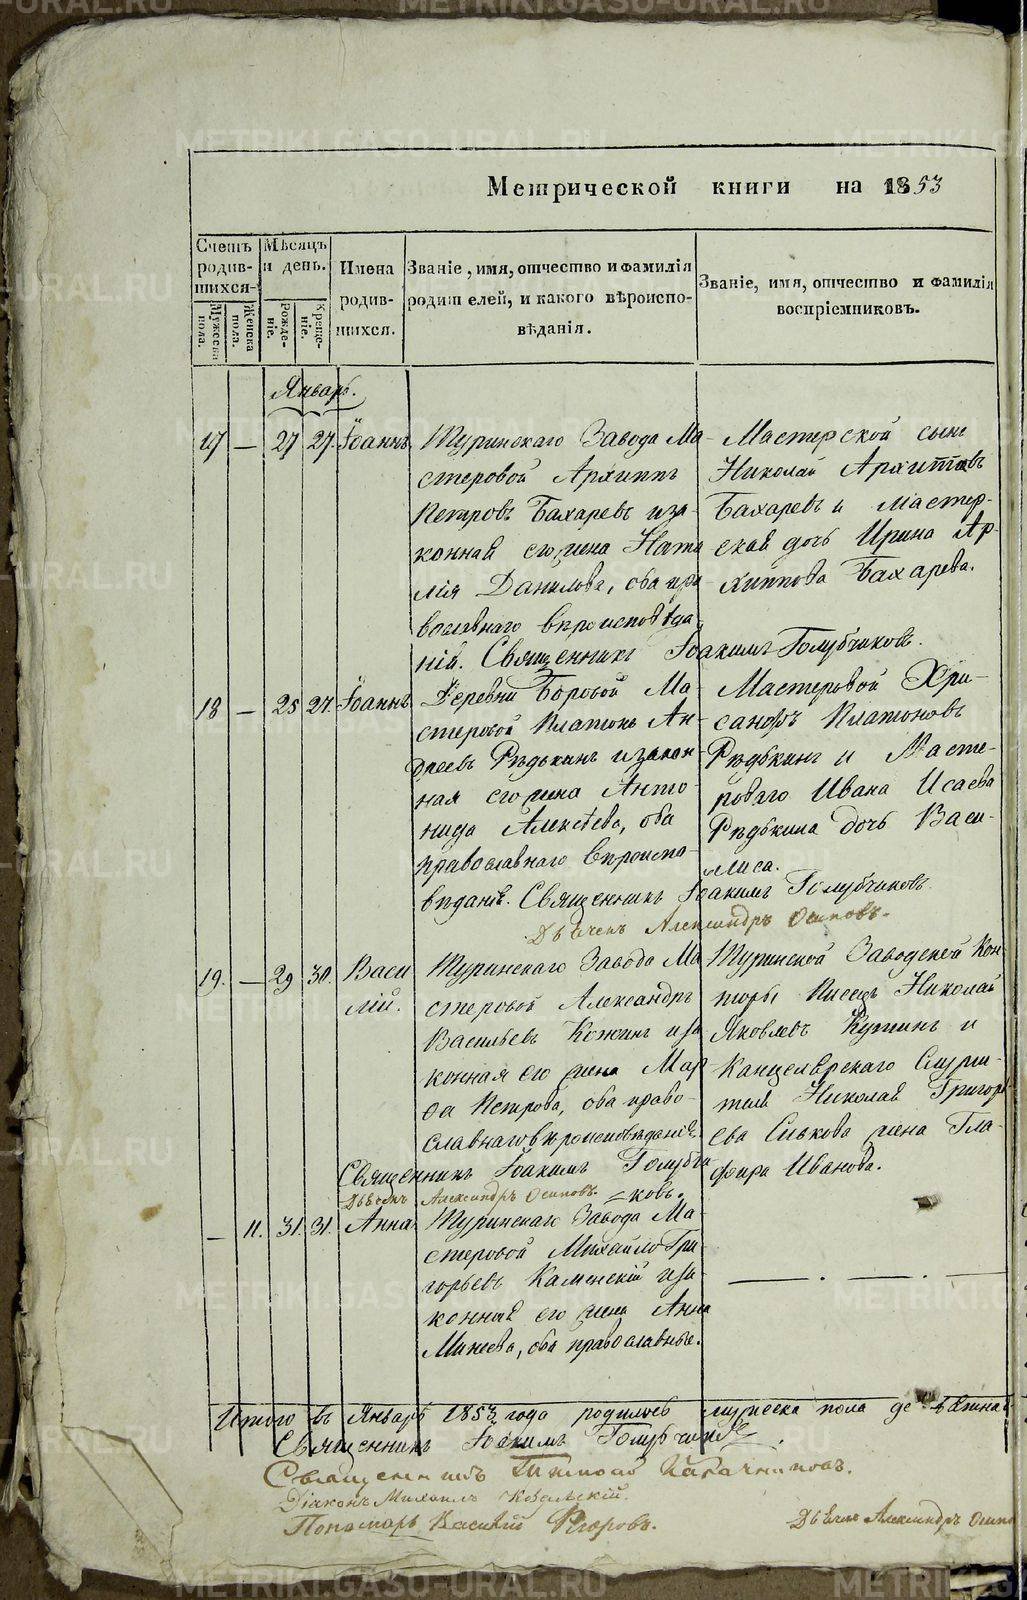 Метрической книги на 1853
Счетъ родив-шихся.
Мѣсяцъ и день.
Имена родив-шихся.
Званіе, имя, отчество и фамилія родителей, и какого вѣроиспо-вѣданія.
Званіе, имя, отчество и фамилія воспріемниковъ.
Мужеска пола.
Женска пола.
Рожде-ніе.
Креще-ніе.
Январь.
17 — 27 27. Іоаннъ
Туринскаго Завода Ма-
стеровой Архиппъ
Петровъ Бахаревъ и за-
конная его жена Ната
лія Данилова, оба пра
вославнаго вѣроисповѣда
нія. Священникъ Іоакимъ Голубчиковъ.
Мастерской сынъ
Николай Архиповъ
Бахаревъ и мастер-
ская дочь Ирина Ар-
хиппова Бахарева.
18 — 25 27. Іоаннъ
Деревни Боровой Ма-
стеровой Платонъ Ан-
дреевъ Рѣдькинъ и закон-
ная его жена Анто-
нида Алексѣева, оба
православнаго вѣроиспо-
вѣданія. Священникъ Іоакимъ Голубчиковъ.
Дьячекъ Александръ Осиповъ.
Мастеровой Хри-
санфъ Платоновъ
Рѣдькинъ и Масте-
роваго Ивана Исаева
Рѣдькина дочь Васи-
лиса.
19. — 29 30. Васи
лій.
Туринскаго Завода Ма
стеровой Александръ
Васильевъ Кожинъ и за
конная его жена Мар
ѳа Петрова, оба право-
славнаго вѣроисповѣданія.
Священникъ Іоакимъ Голубчи
=ковъ.
Дьячекъ Александръ Осиповъ.
Туринской Заводской Кон
торы Писецъ Николай
Яковлевъ и
Канцелярскаго Служи-
теля Николая Григорь
ева Сивкова жена Гла-
фира Иванова.
— 11. 31. 31. Анна
Туринскаго Завода Ма-
стеровой Михайло Гри
горьевъ Каменскій и за-
конная его жена Анна
Минеева, оба православные.
Итого въ Январѣ 1853 года родилось мужеска пола де
Священникъ Іоакимъ Голубчиковъ.
Священникъ
Діаконъ Михаилъ
Пономарь Василій Ѳедоровъ.
Дьячекъ Александръ Осипо
METRIKI.GASO-URAL.RU